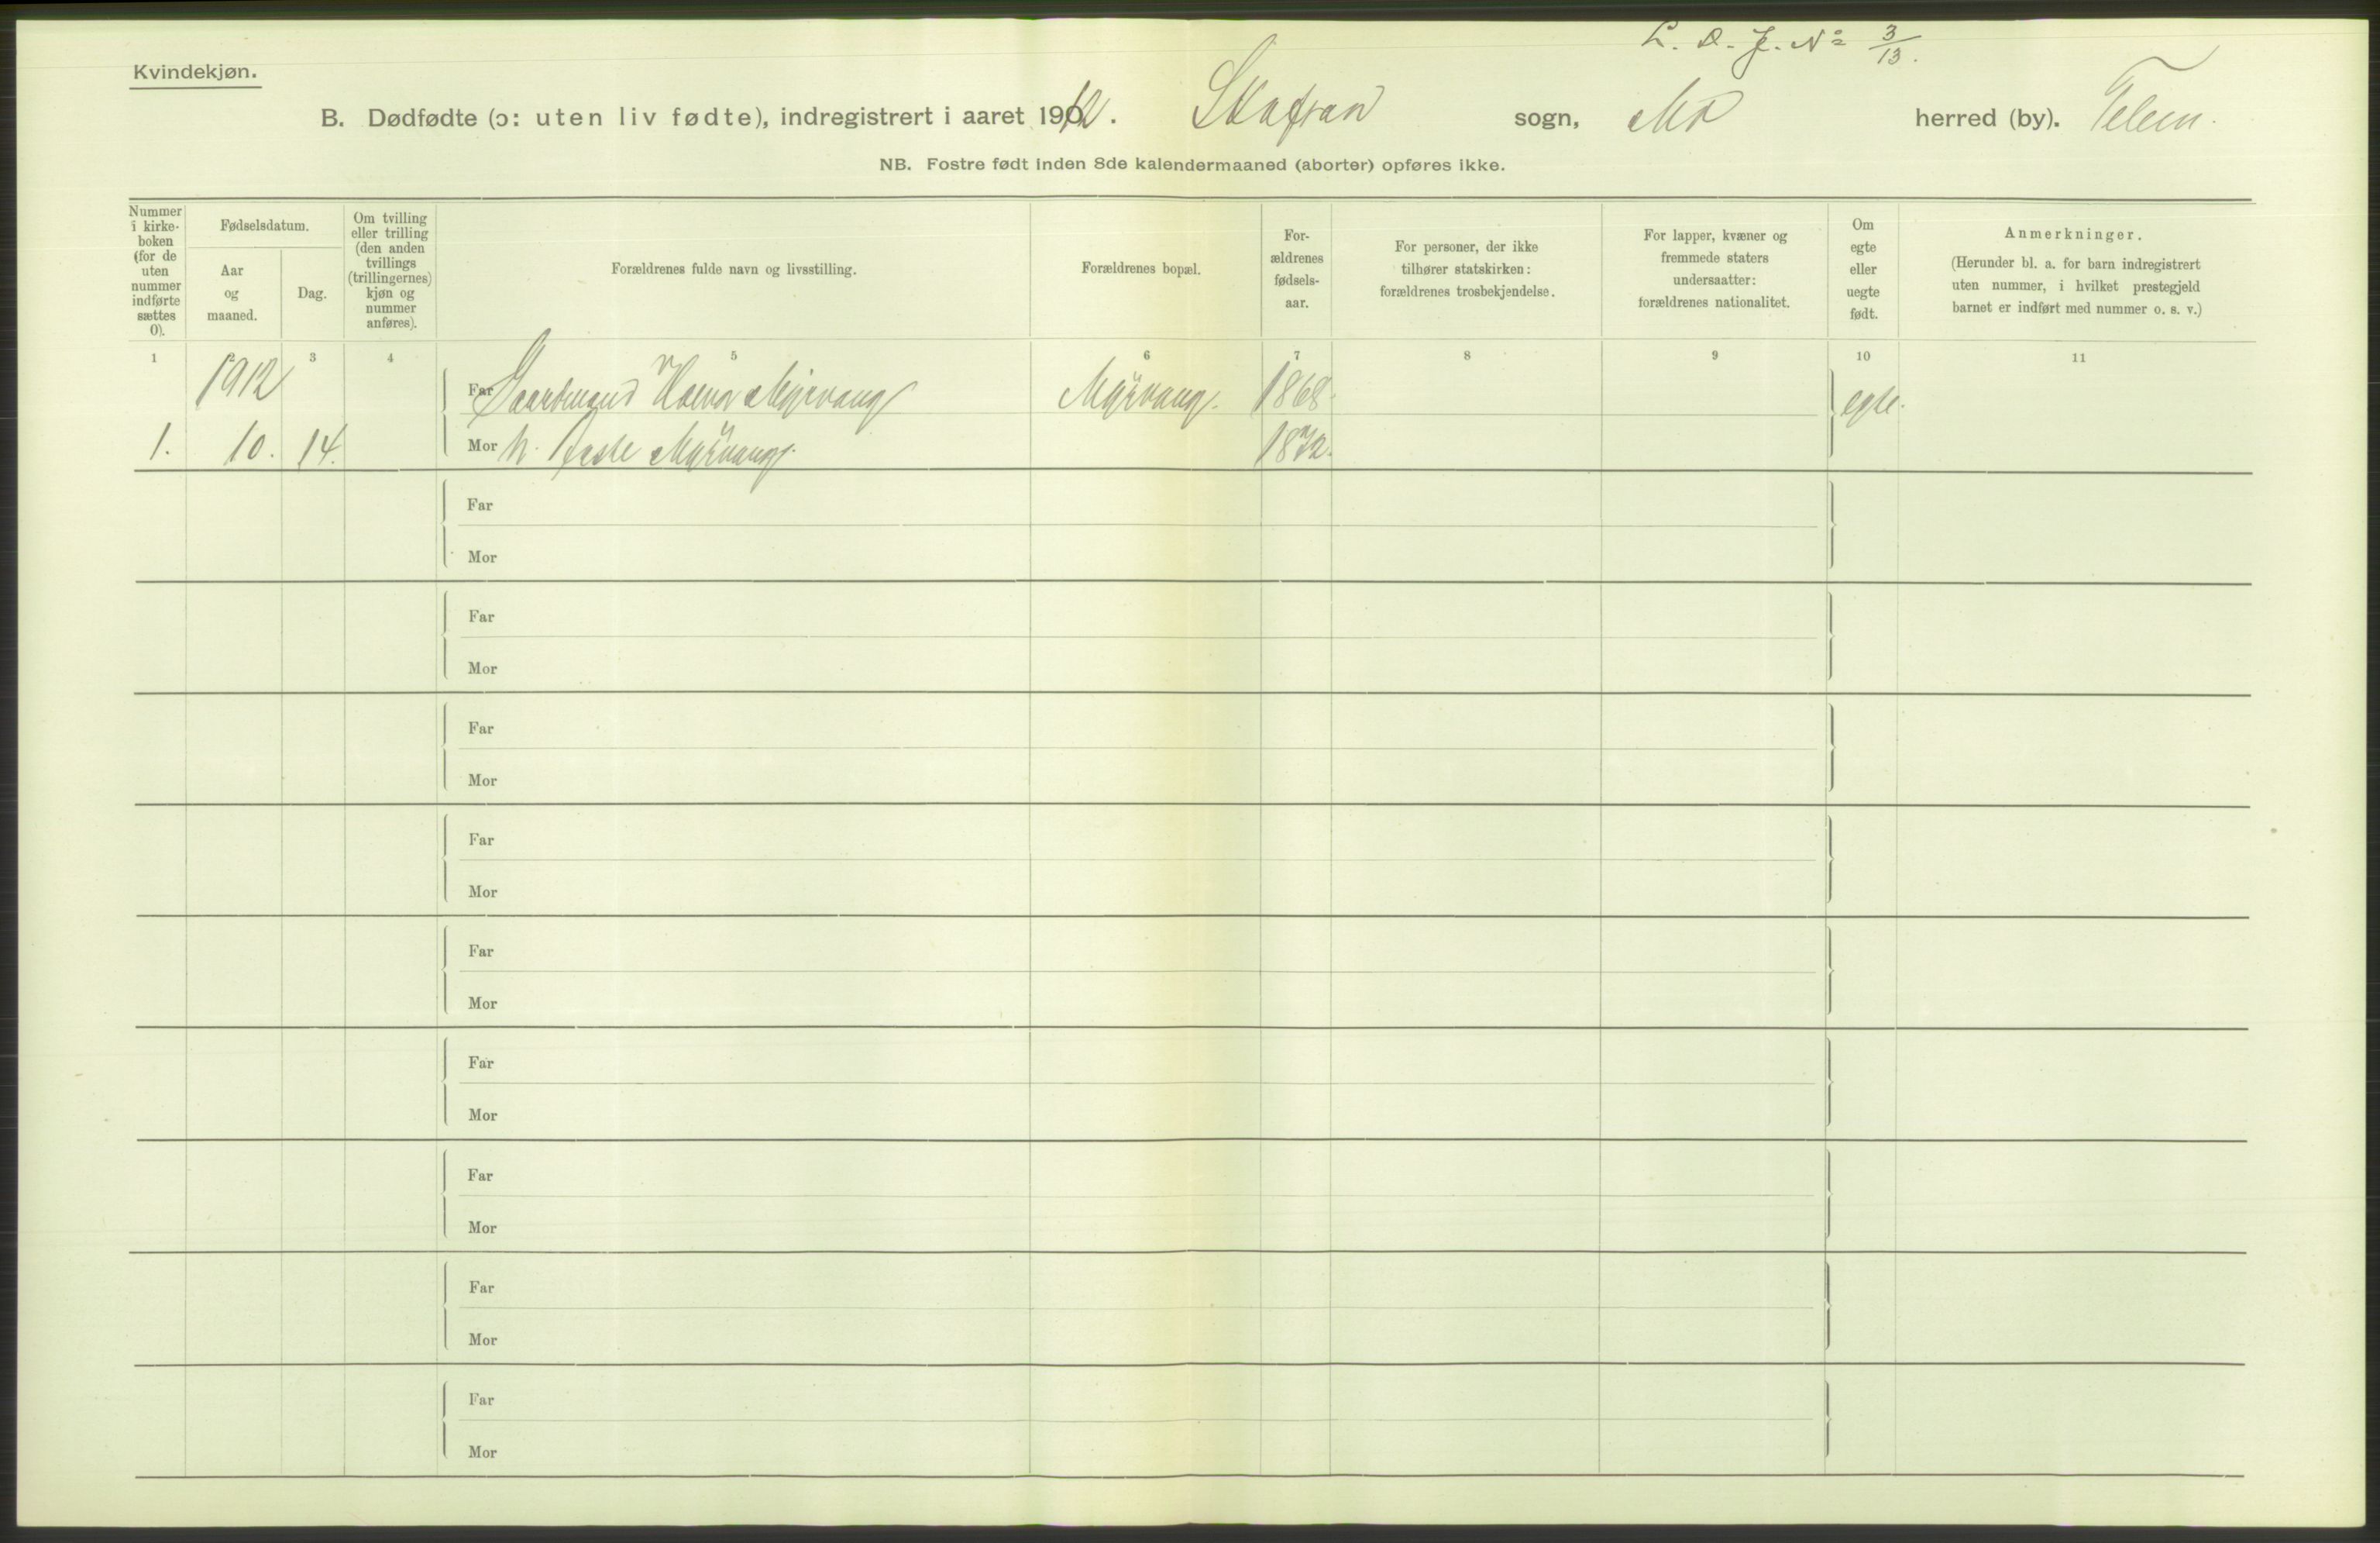 L. D. J. No 3/13.
Kvindekjøn.
B. Dødfødte (ɔ: uten liv fødte), indregistrert i aaret 1912. Skafsaa sogn, Mo herred (by). Telem.
NB. Fostre født inden 8de kalendermaaned (aborter) opføres ikke.
Nummer i kirke-boken (for de uten nummer indførte sættes 0).
Fødselsdatum.
Aar og maaned.
Dag.
Om tvilling eller trilling (den anden tvillings (trillingernes) kjøn og nummer anføres).
Forældrenes fulde navn og livsstilling.
Forældrenes bopæl.
For-ældrenes fødsels-aar.
For personer, der ikke tilhører statskirken: forældrenes trosbekjendelse.
For lapper, kvæner og fremmede staters undersaatter: forældrenes nationalitet.
Om egte eller uegte født.
Anmerkninger.
(Herunder bl. a. for barn indregistrert uten nummer, i hvilket prestegjeld barnet er indført med nummer o. s. v.)
1 2 3 4 5 6 7 8 9 10 11
1912 Far Gaardmand Myrvang Myrvang. 1868. egte.
1. 10. 14. Mor h. Myrvang. 1872.
Far
Mor
Far
Mor
Far
Mor
Far
Mor
Far
Mor
Far
Mor
Far
Mor
Far
Mor
Far
Mor